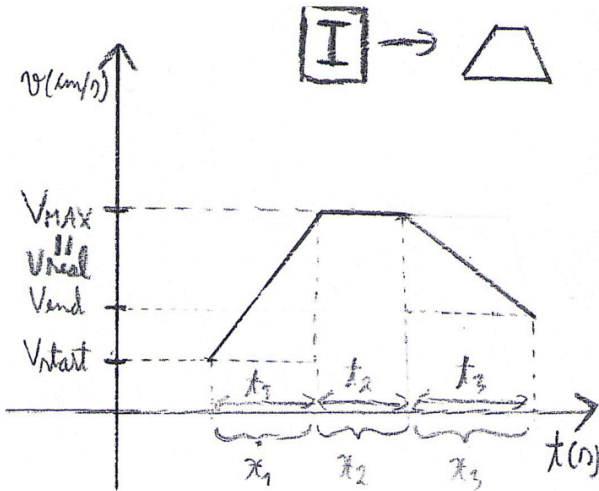 I
v(cm/s)
VMAX
=
Vreal
Vend
Vstart
t1 t2 t3
x1 x2 x3
t(s)